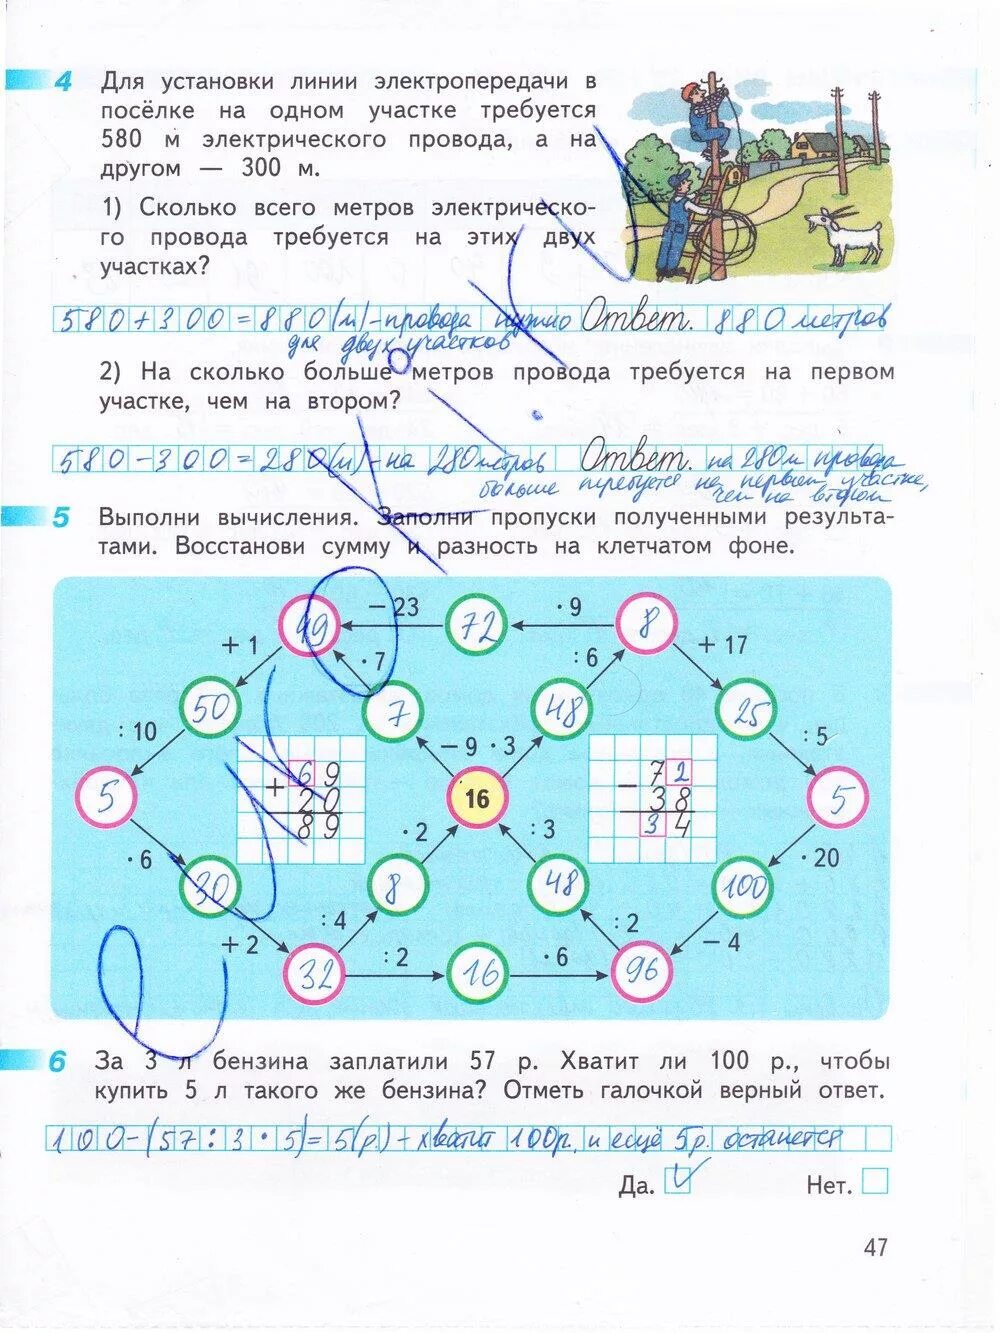 4 Для установки линии электропередачи в
посёлке на одном участке требуется
580 м электрического провода, а на
другом — 300 м.
1) Сколько всего метров электрическо-
го провода требуется на этих двух
участках?
580+300=880(м)-провода нужно Ответ. 880 метров
для двух участков
2) На сколько больше метров провода требуется на первом
участке, чем на втором?
580-300=280(м)-на 280 метров Ответ. на 280м провода
больше требуется на первом участке,
чем на втором
5 Выполни вычисления. Заполни пропуски полученными результа-
тами. Восстанови сумму и разность на клетчатом фоне.
49 − 23 72 · 9 8
+ 1 · 7 : 6 + 17
50 7 48 25
: 10 − 9 · 3 : 5
+ 69 − 72
5 20 16 38 5
89 34
· 6 · 2 : 3 · 20
30 8 48 100
+ 2 : 4 : 2 − 4
32 : 2 16 · 6 96
6 За 3 л бензина заплатили 57 р. Хватит ли 100 р., чтобы
купить 5 л такого же бензина? Отметь галочкой верный ответ.
100-(57:3·5)=5(р.)-хватит 100р. и ещё 5р. останется
Да. Нет.
47